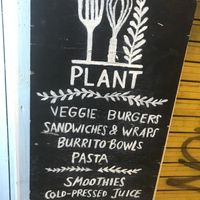 PLANT
VEGGIE BURGERS
SANDWICHES & WRAPS
BURRITO BOWLS
PASTA
SMOOTHIES
COLD-PRESSED JUICE